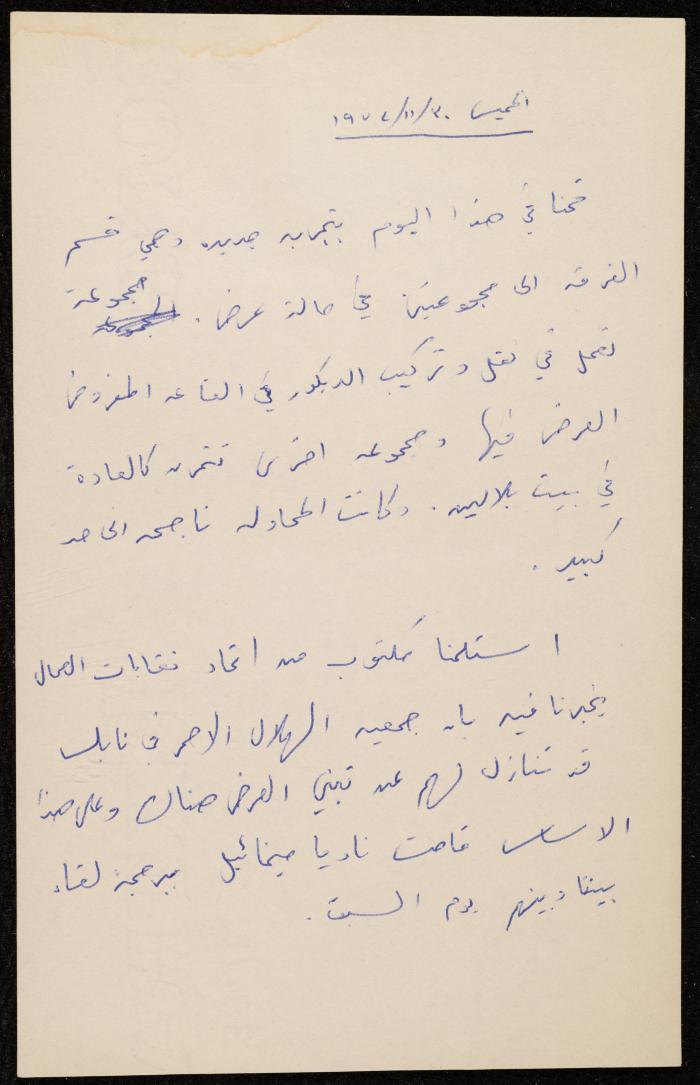 الخميس ١٩٧٢/١١/٣٠
قمنا في هذا اليوم بتجربه جديده وهي قسم
الفرقه الى مجموعتين في حالة عرض. مجموعة
تعمل في نقل وتركيب الديكور في القاعه المفروض
العرض فيها ومجموعه اخرى تتمرن كالعادة
في بيت بلالين. وكانت المحاوله ناجحه الى حد
كبير.
استلمنا مكتوب من اتحاد نقابات العمال
يخبرنا فيه بان جمعيه الهلال الاحمر في نابلس
قد تنازل لهم عن تبني العرض هناك وعلى هذا
الاساس قامت ناديا ميخائيل ببرمجة لقاء
بيننا وبينهم يوم السبت.